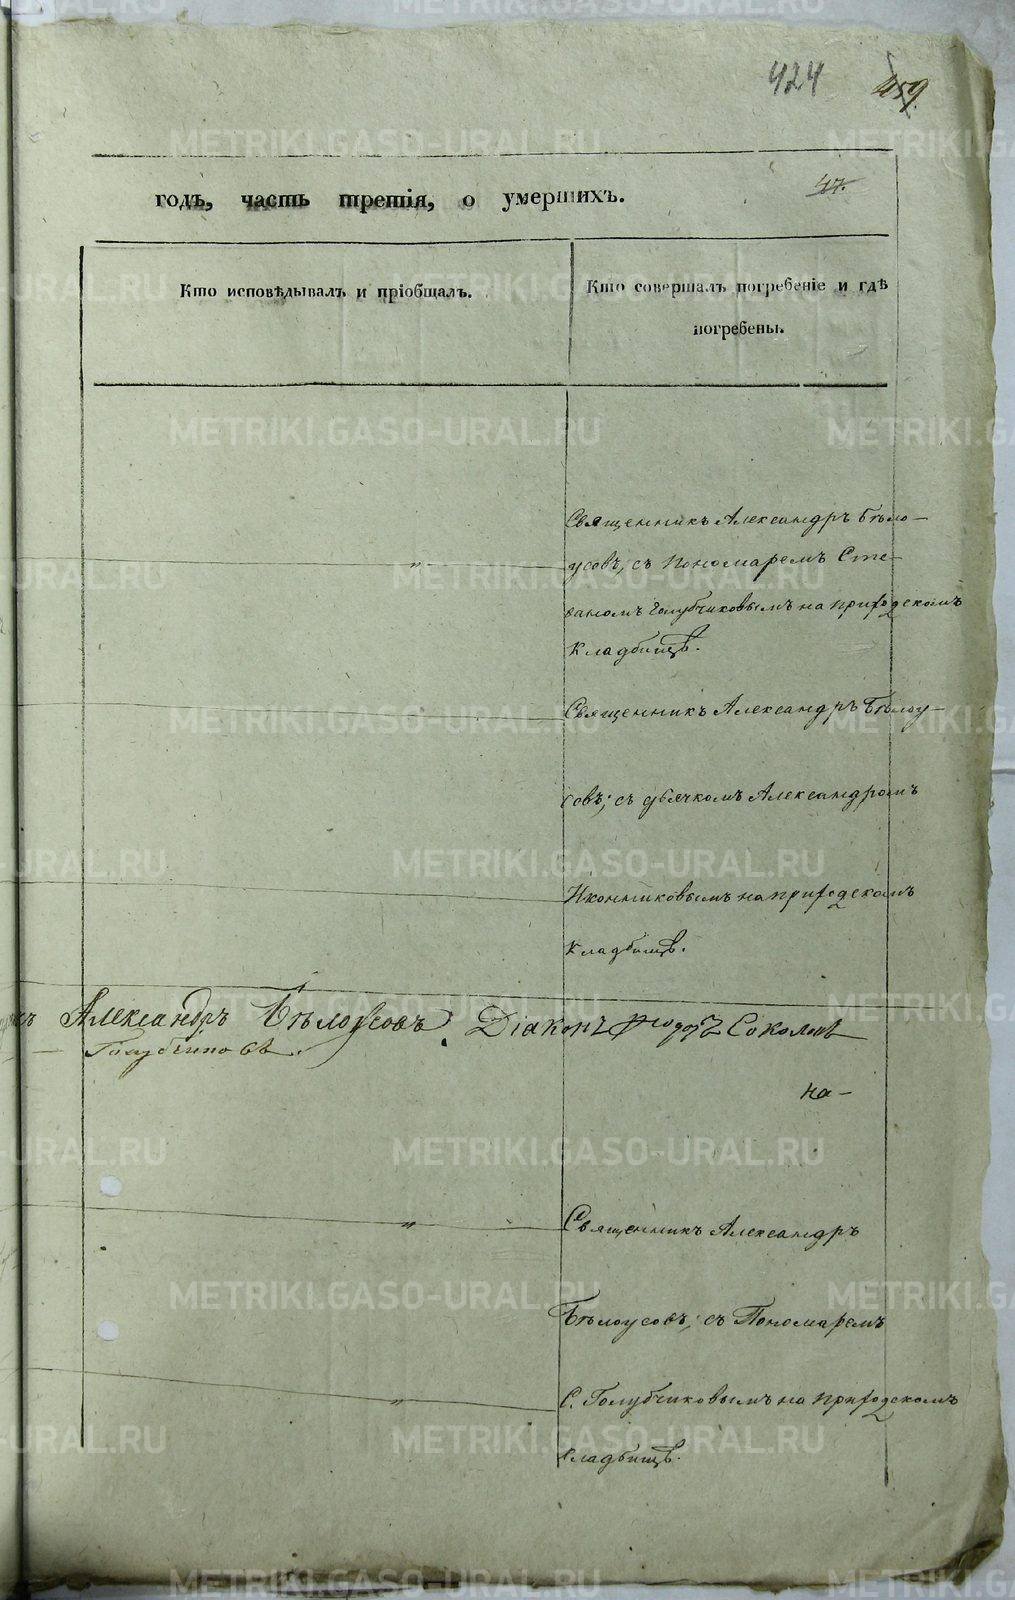 424 459
47.
годъ, часть третія, о умершихъ.
Кто исповѣдывалъ и пріобщалъ.
Кто совершалъ погребеніе и гдѣ
погребены.
Священникъ Александръ Бѣло-
усовъ, съ пономаремъ Сте-
паномъ Голубчиковымъ на приходскомъ
кладбищѣ.
Священникъ Александръ Бѣлоу-
совъ; съ дьячкомъ Александромъ
Иконниковымъ на приходскомъ
кладбищѣ.
Александръ Бѣлоусовъ. Діаконъ Ѳеодоръ Соколовъ
Голубчиковъ.
на-
Священникъ Александръ
Бѣлоусовъ; съ Пономаремъ
С. Голубчиковымъ на приходскомъ
кладбищѣ.
METRIKI.GASO-URAL.RU